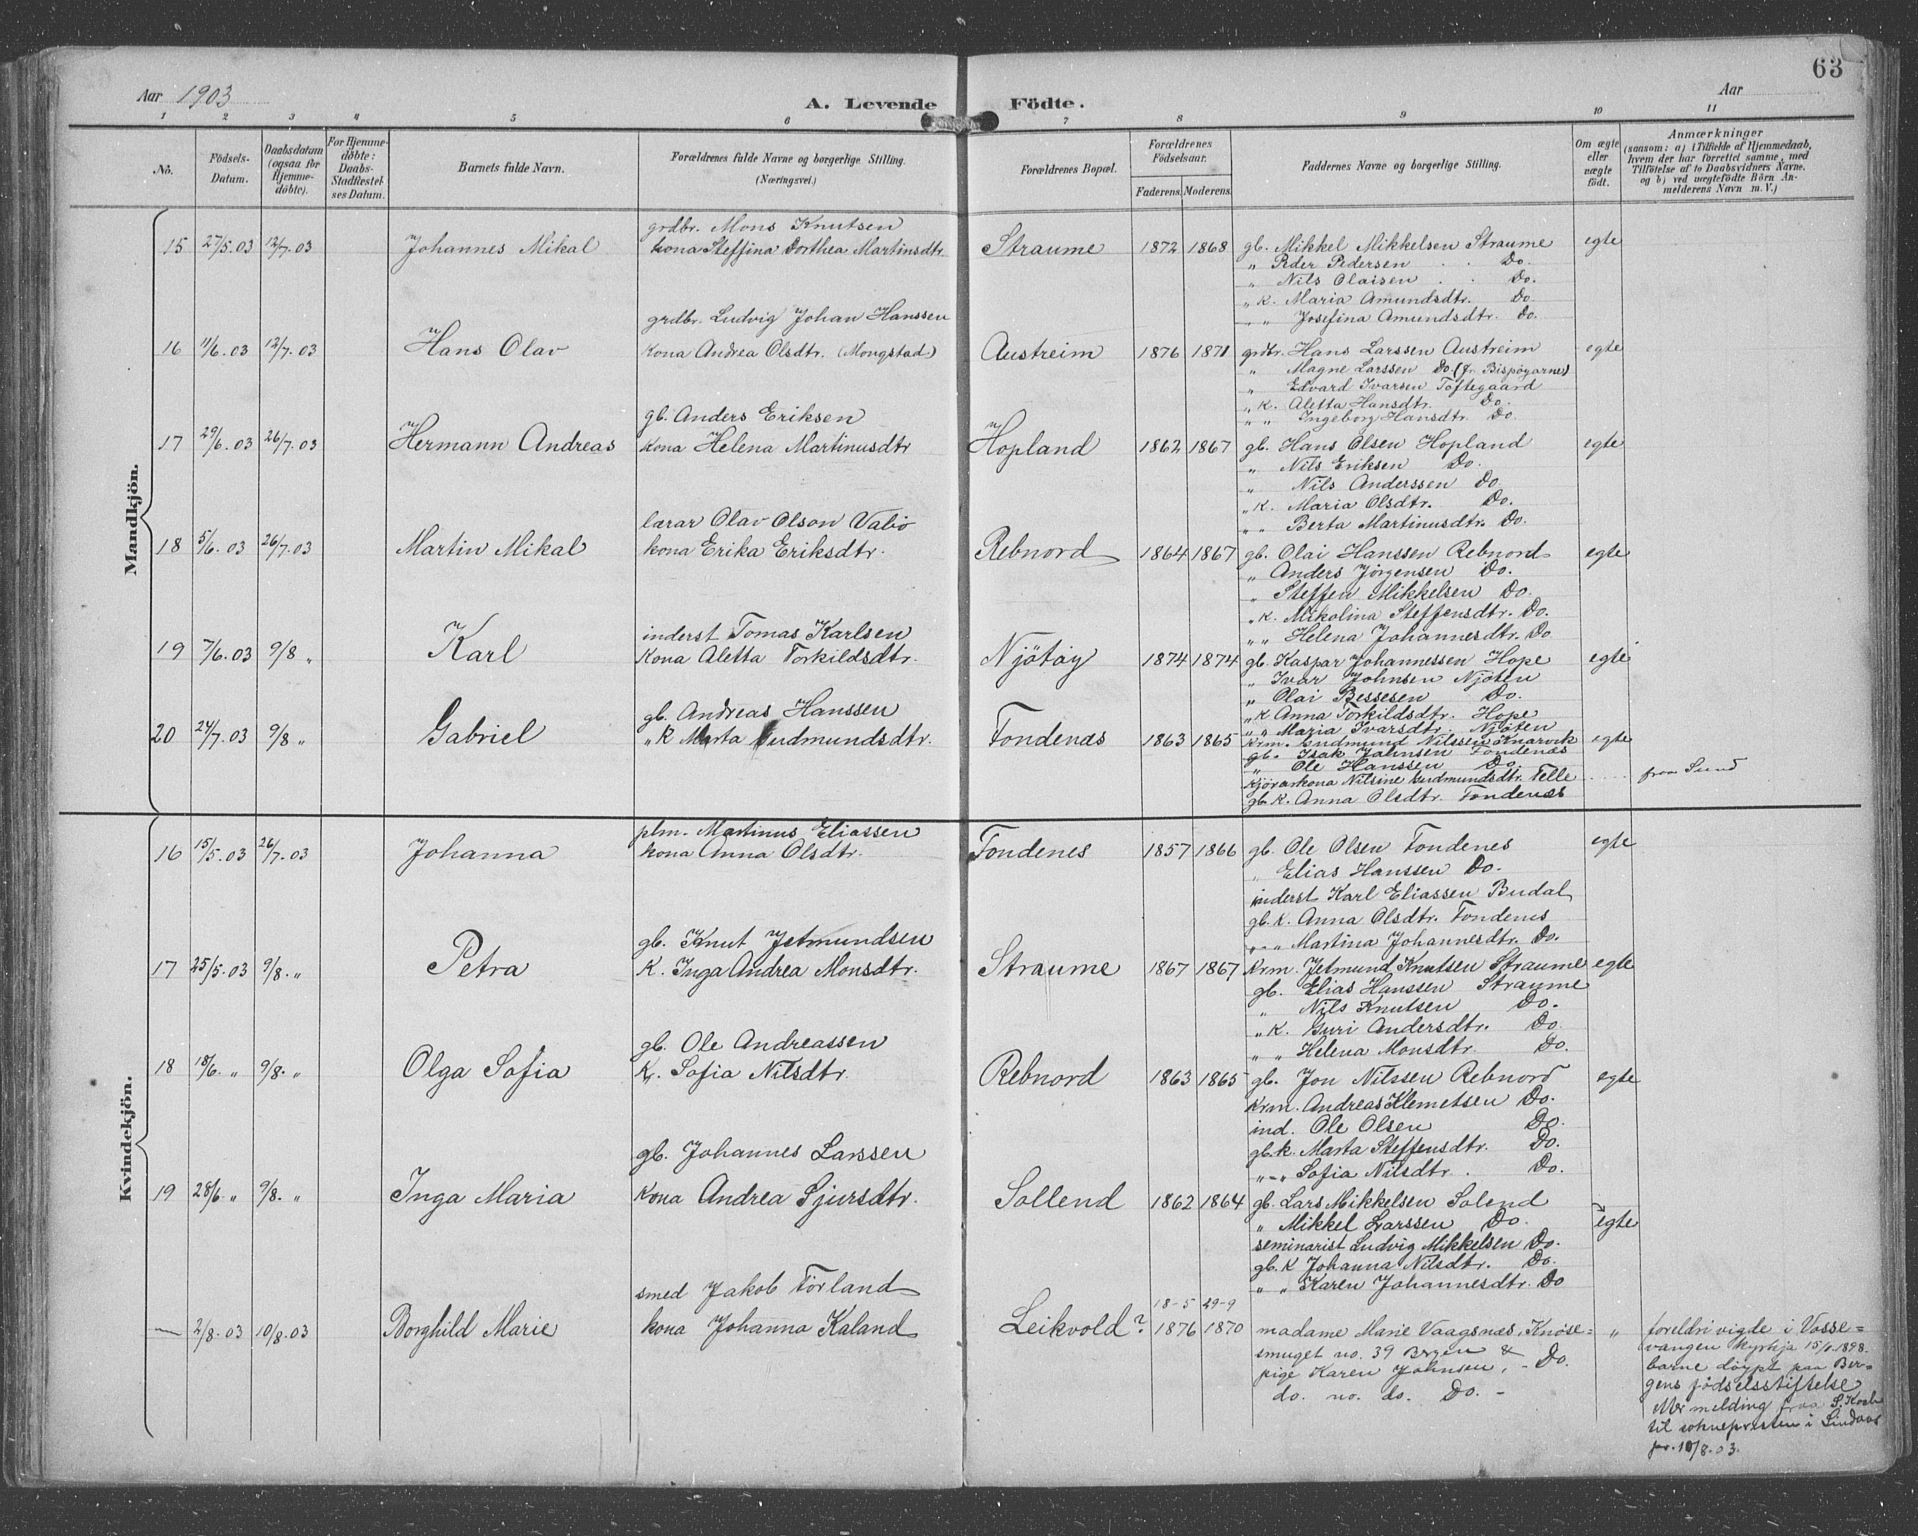 63
Aar 1903
A. Levende Födte.
Aar
1 2 3 4 5 6 7 8 9 10 11
No.
Födsels-Datum.
Daabsdatum (ogsaa for Hjemme-döbte).
For Hjemme-döbte: Daabs-Stadfæstelses Datum.
Barnets fulde Navn.
Forældrenes fulde Navne og borgerlige Stilling. (Næringsvei.)
Forældrenes Bopæl.
Forældrenes Födselsaar.
Faderens. Moderens.
Faddernes Navne og borgerlige Stilling.
Om ægte eller uægte födt.
Anmærkninger (saasom: a) i Tilfælde af Hjemmedaab, hvem der har forrettet samme, med Tilföielse af to Daabsvidners Navne, og b) ved uægtefödte Börn Anmelderens Navn m. V.)
Mandkjön.
15 27/5.03 12/7.03 Johannes Mikal
grdbr. Mons Knutsen
kona Steffina Dorthea Martinsdtr.
Straume 1872 1868
gb. Mikkel Mikkelsen Straume egte
" Peder Pedersen Do.
" Nils Olaisen Do.
" K. Maria Amundsdtr. Do
" " Josefina Amundsdtr. Do.
16 11/6.03 12/7.03 Hans Olav
grdbr. Ludvig Johan Hanssen
kona Andrea Olsdtr. (Mongstad)
Austreim 1876 1871
grdbr. Hans Larssen Austreim egte
" Magne Larssen Do (fr. Bispöyarne)
" Edvard Ivarsen Toftegaard
" K. Aletta Hansdtr. Do.
" " Ingeborg Hansdtr. Do.
17 29/6.03 26/7.03 Hermann Andreas
gb. Anders Eriksen
kona Helena Martinusdtr
Hopland 1862 1867
gb. Hans Olsen Hopland egte
" Nils Eriksen Do.
" Nils Anderssen Do
" K. Maria Olsdtr. Do.
" " Berta Martinusdtr. Do.
18 5/6.03 26/7.03 Martin Mikal
lærar Olav Olson Valio
kona Erika Eriksdtr.
Rebnord 1864 1867
gb. Olai Hanssen Rebnord egte
" Anders Jörgensen Do.
" Steffen Mikkelsen Do.
" K. Mikolina Steffensdtr. Do.
" " Helena Johannesdtr. Do
19 7/6.03 9/8 " Karl
inderst Tomas Karlsen
Kona Aletta Torkildsdtr.
Njötöy 1874 1874
gb. Kaspar Johannessen Hope egte
" Ivar Johnsen Njöten
" Olai Bessesen Do.
" K Anna Torkildsdtr. Hope
" " Maria Ivarsdtr. Njöten
20 24/7.03 9/8 " Gabriel
gb. Andreas Hanssen
" K Marta Gudmundsdtr.
Fondenæs 1863 1865
Krm. Gudmund Nilssen Knarvik egte
gb. Isak Johnsen Fondenæs
" Ole Hanssen Do.
Kjörarkona Nilsine Gudmundsdtr. Telle fraa Sund
gb. K. Anna Olsdtr. Fondenæs
Kvindekjön.
16 15/5.03 26/7.03 Johanna
plm. Martinus Eliassen
kona Anna Olsdtr.
Fondenes 1857 1866
gb. Ole Olsen Fondenes egte
" Elias Hanssen Do.
inderst Karl Eliassen Budal
gb. K. Anna Olsdtr. Fondenes
" " " Martina Johannesdtr. Do.
17 25/5.03 9/8. " Petra
gb. Knut Jetmundsen
K. Inga Andrea Monsdtr.
Straume 1867 1867
Krm. Jetmund Knutsen Straume egte
gb. Elias Hanssen Straume
" Nils Knutsen Do.
" K. Guri Andersdtr. Do.
" " Helena Monsdtr. Do.
18 18/6. " 9/8. " Olga Sofia
gb. Ole Andreassen
K. Sofia Nilsdtr.
Rebnord 1863 1865
gb. Jon Nilssen Rebnord egte
Krm. Andreas Klemetsen Do.
ind. Ole Olsen Do.
gb. k. Marta Steffensdtr. Do.
" " Sofia Nilsdtr. Do.
19 28/6 " 9/8. " Inga Maria
gb. Johannes Larssen
kona Andrea Sjursdtr.
Sollend 1862 1864
gb. Lars Mikkelsen Solend
" Mikkel Larssen Do. egte
seminarist Ludvig Mikkelsen Do.
gb. K Johanna Nilsdtr. Do.
" " Karen Johannesdtr. Do
— 2/8.03 10/8.03 Borghild Marie
smed Jakob Förland
kona Johanna Kaland
Leikvold? 18-5 1876 29-9 1870
madame Marie Vaagsnæs, Knöse- "
smuget no. 39 Brgen &
pige Karen Johnsen, - Do.
do. no. do. Do. -
foreldri vigde i Vosse-
vangen kyrkja 15/6.1898.
barne döypt paa Ber-
gens födselsstiftelse
Mer melding fraa S. Koch
til sokneprest en i Lindaas
pr. 10/8.03.